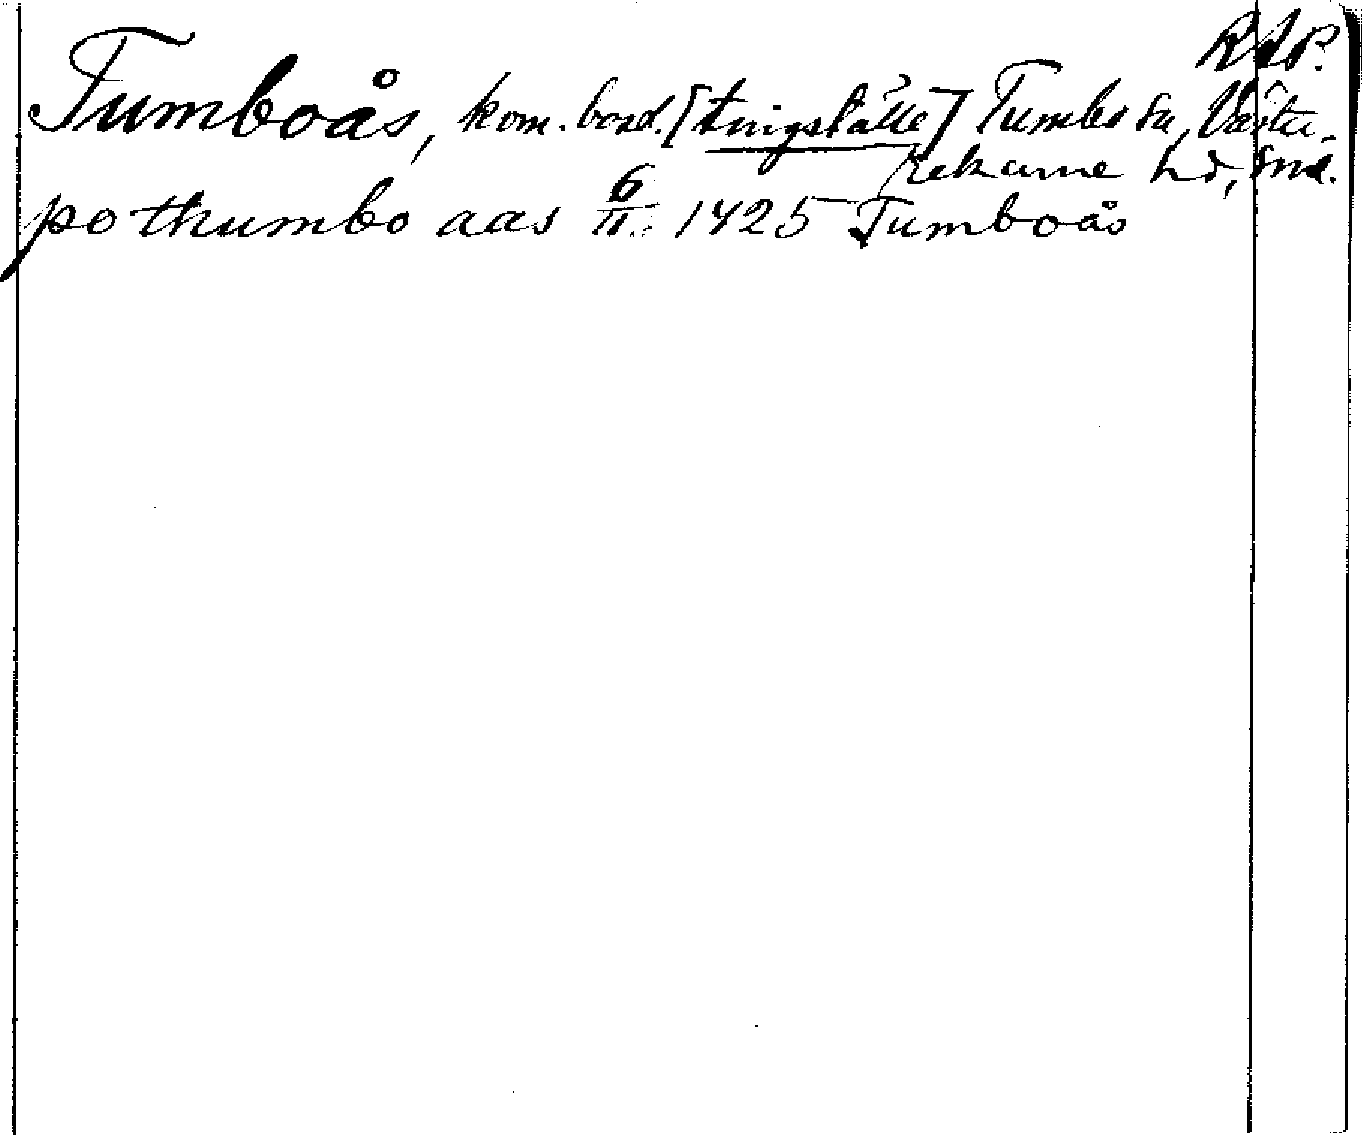 RAP.
Tumboås, kom. bord. [tingställe] Tumbo sn, Väster-
rekarne hd, Smd.
po thumbo aas 6/11 1425 Tumboås